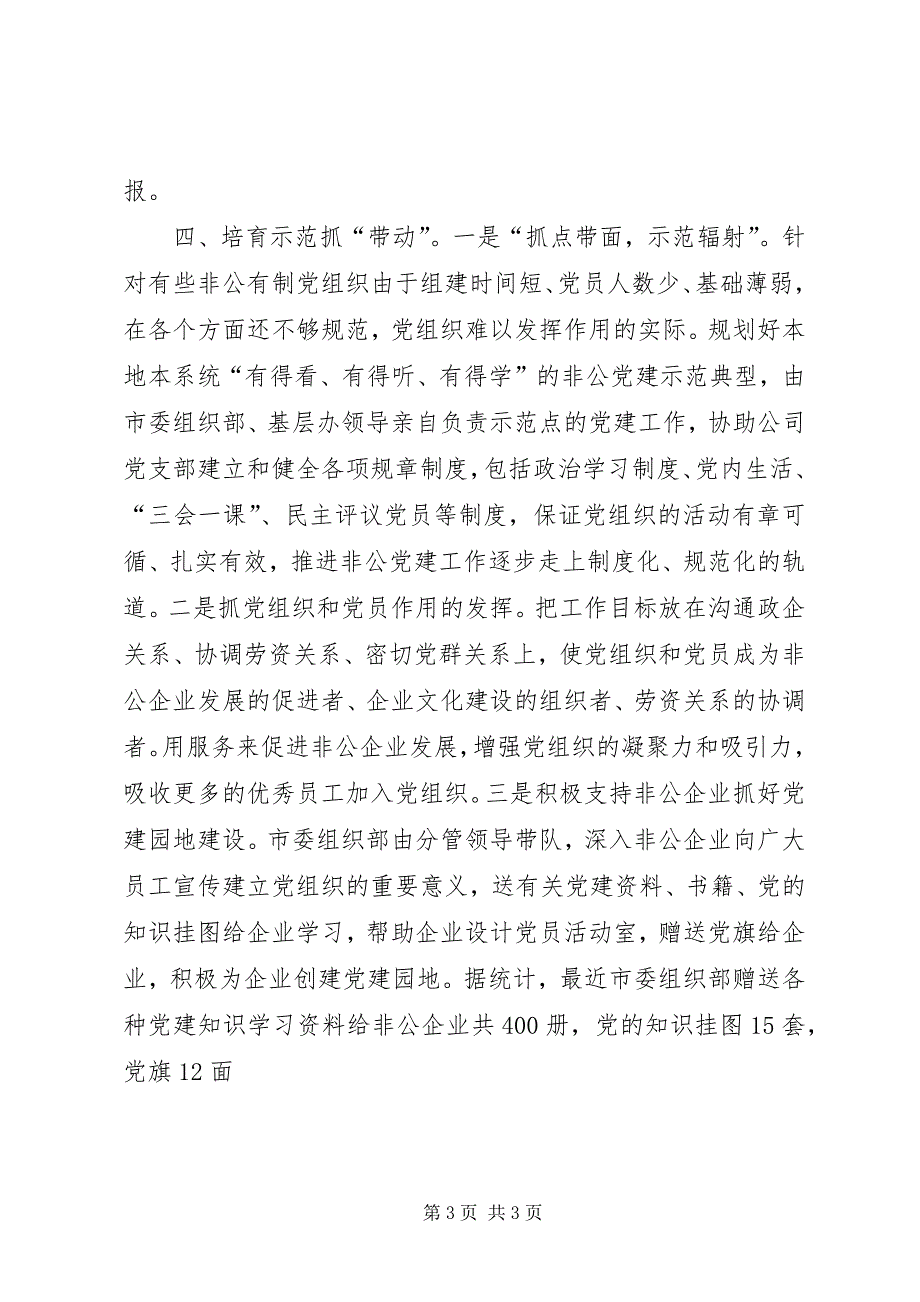 报。
四、培育示范抓“带动”。一是“抓点带面，示范辐射”。针
对有些非公有制党组织由于组建时间短、党员人数少、基础薄弱，
在各个方面还不够规范，党组织难以发挥作用的实际。规划好本
地本系统“有得看、有得听、有得学”的非公党建示范典型，由
市委组织部、基层办领导亲自负责示范点的党建工作，协助公司
党支部建立和健全各项规章制度，包括政治学习制度、党内生活、
“三会一课”、民主评议党员等制度，保证党组织的活动有章可
循、扎实有效，推进非公党建工作逐步走上制度化、规范化的轨
道。二是抓党组织和党员作用的发挥。把工作目标放在沟通政企
关系、协调劳资关系、密切党群关系上，使党组织和党员成为非
公企业发展的促进者、企业文化建设的组织者、劳资关系的协调
者。用服务来促进非公企业发展，增强党组织的凝聚力和吸引力，
吸收更多的优秀员工加入党组织。三是积极支持非公企业抓好党
建园地建设。市委组织部由分管领导带队，深入非公企业向广大
员工宣传建立党组织的重要意义，送有关党建资料、书籍、党的
知识挂图给企业学习，帮助企业设计党员活动室，赠送党旗给企
业，积极为企业创建党建园地。据统计，最近市委组织部赠送各
种党建知识学习资料给非公企业共 400 册，党的知识挂图 15 套，
党旗 12 面
第 3 页 共 3 页